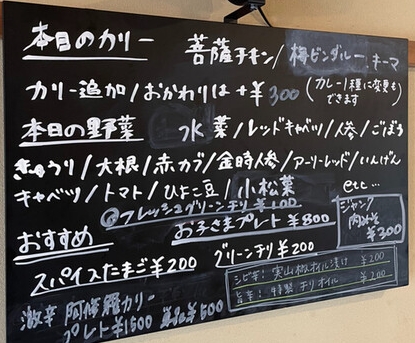 本日のカリー 菩薩チキン/梅ビンダルー、キーマ
カリー追加/おかわりは +¥300 (カレー1種に変更もできます)
本日の野菜 水菜/レッドキャベツ/人参/ごぼう
きゅうり/大根/赤カブ/金時人参/アーリーレッド/いんげん
キャベツ/トマト/ひよこ豆/小松菜 etc…
フレッシュグリーンチリ¥100
おすすめ お子さまプレート¥800
ジャンク肉みそ ¥300
スパイスたまご¥200 グリーンチリ¥200
シビ辛: 実山椒オイル漬け ¥200
旨辛: 特製チリオイル ¥200
激辛 阿修羅カリー
プレート¥1500 単品¥500